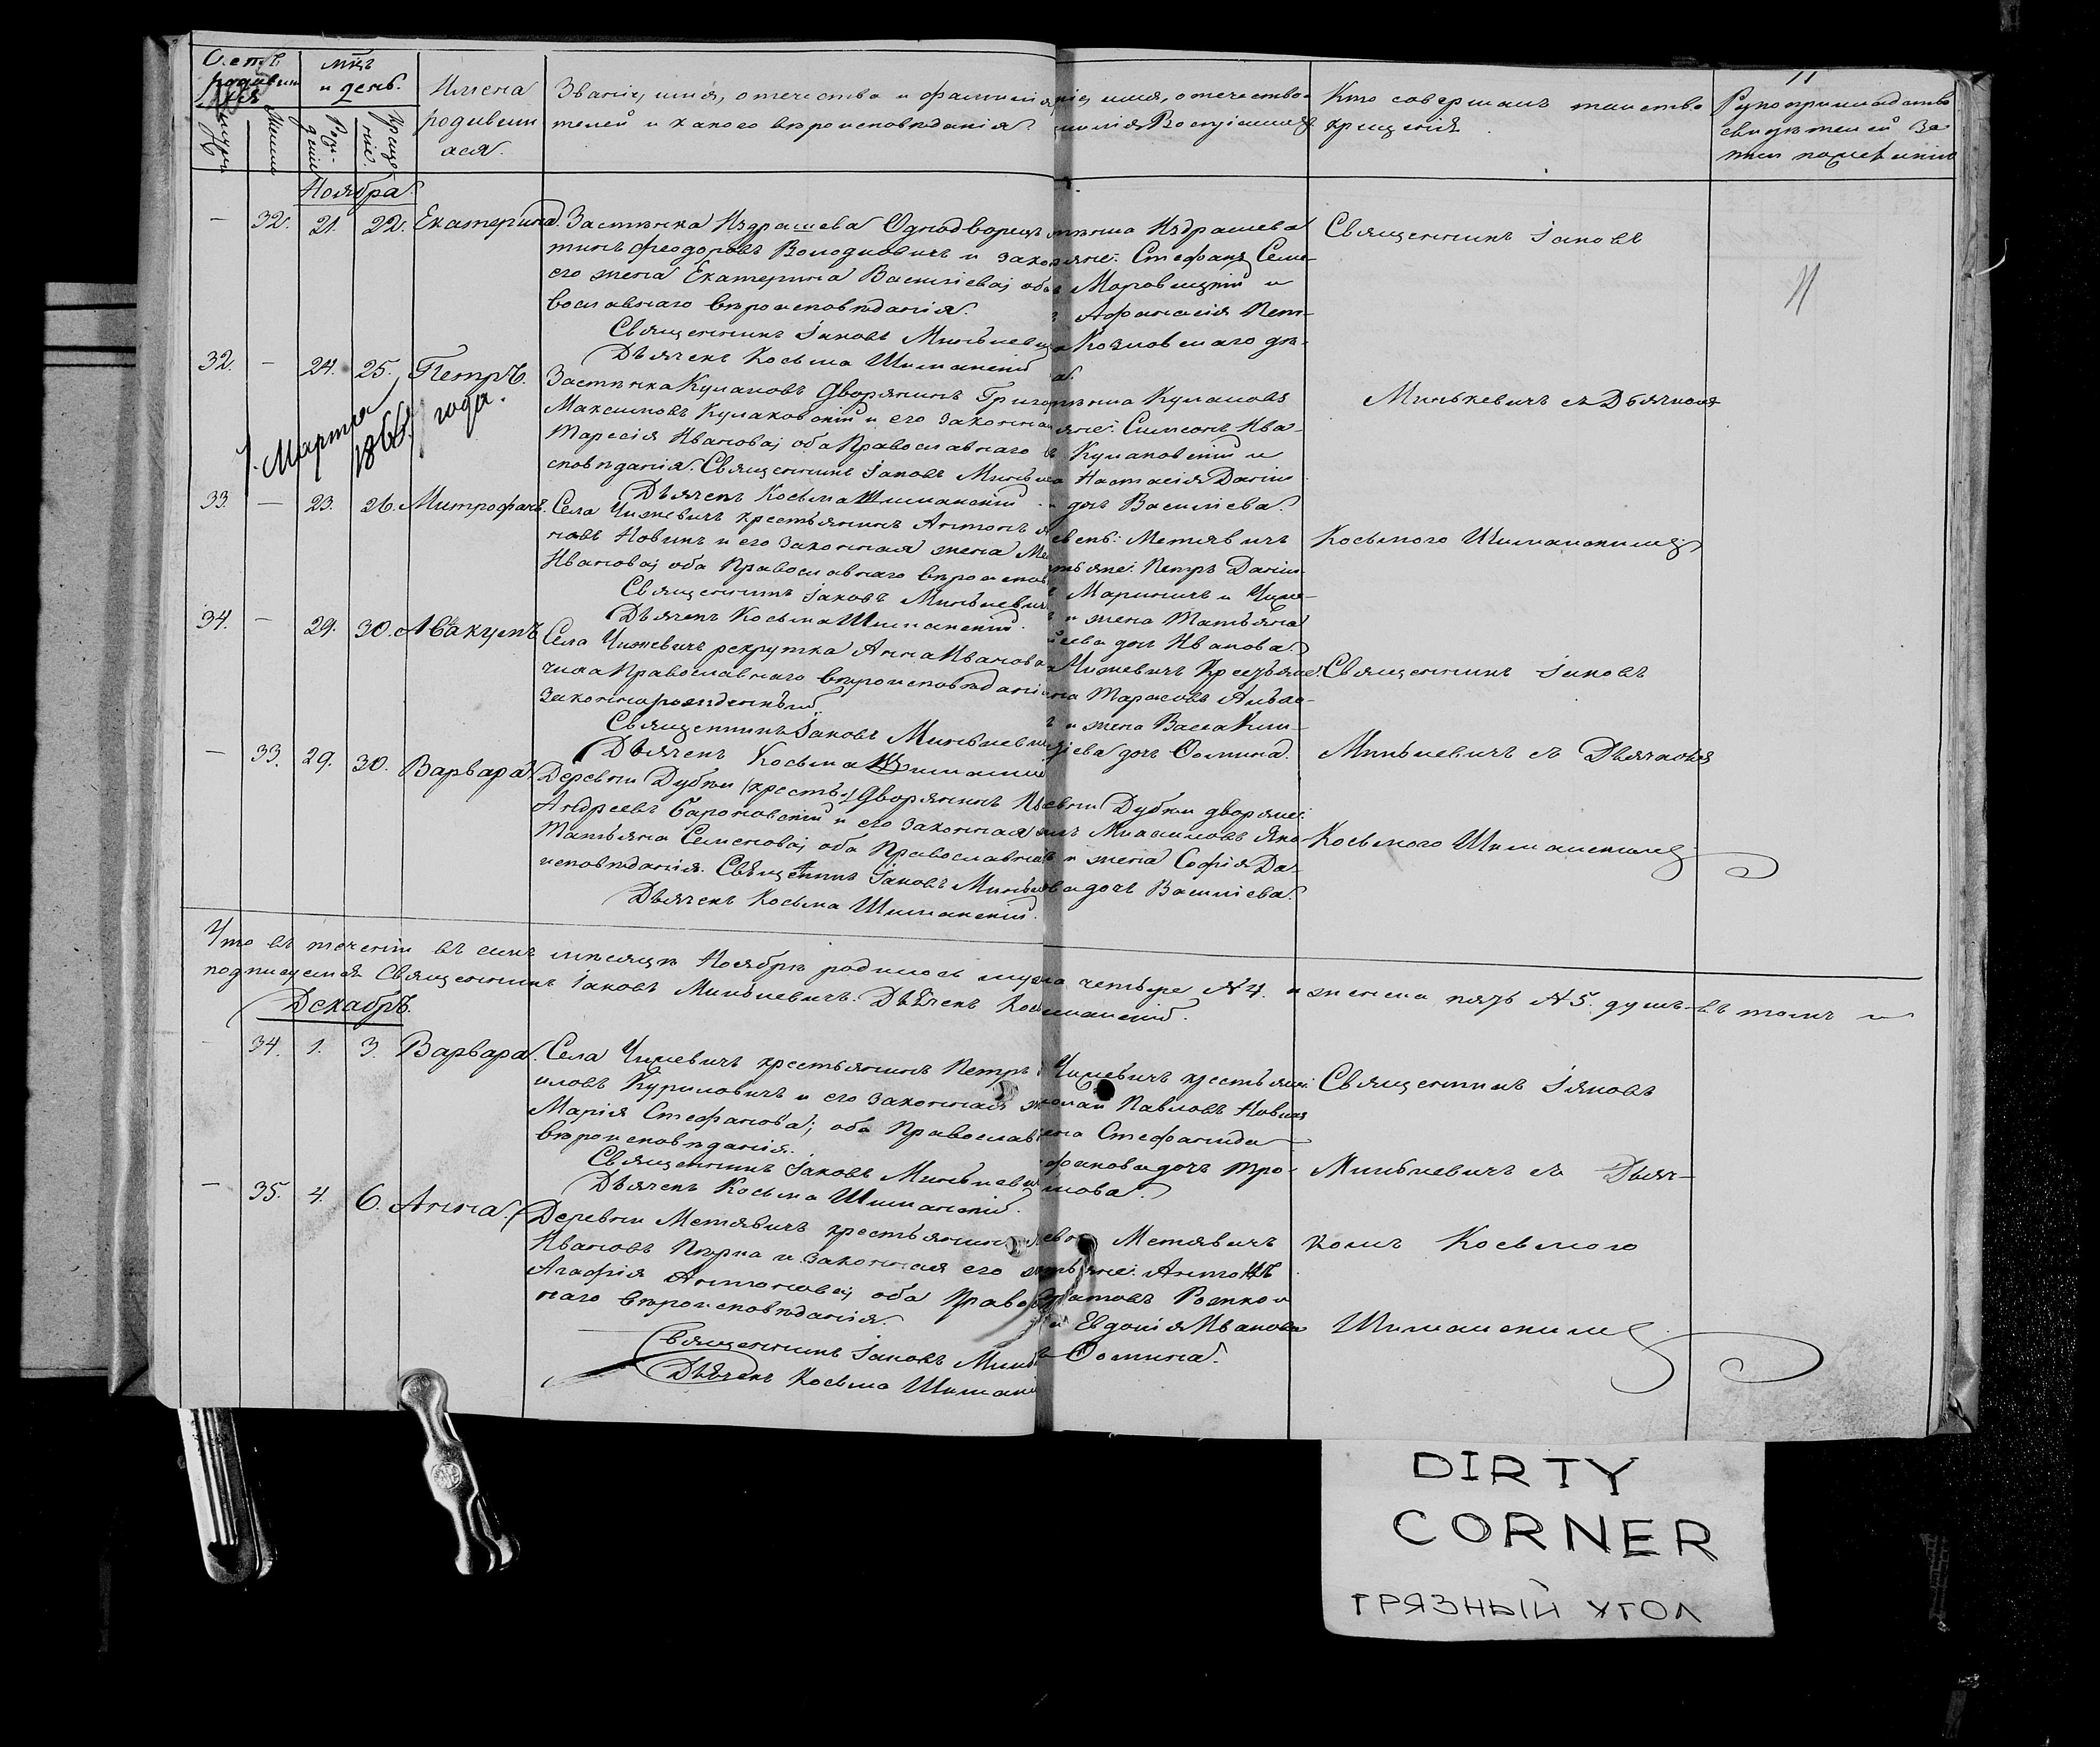 Счетъ родившихся
мцъ и день.
Имена родившихся.
Званіе, имя, отечество и фамилія
телей и какого вѣроисповѣданія.
ніе, имя, отечество
милія Воспріемни
Кто совершалъ таинство
крещенія
11
Рукоприкладство
свидѣтелей за
писи по желанію
Рожденія
Крещенія
Ноября.
— 32. 21. 22. Екатерина.
Застѣнка Издрашева Однодворецъ
тинъ Феодоровъ Володковичъ и закон
его жена Екатерина Василіева; оба
вославнаго вѣроисповѣданія.
Священникъ Іаковъ Минькевич
Дьячекъ Косьма Шиманскій
стѣнка Издрашева
яне: Стефанъ Семе-
Маровицкій и
Афанасія Пет-
Козловскаго дѣ-
ва.
Священникъ Іаковъ
11
32. — 24. 25. Петръ.
1. Марта 1866 года.
Застѣнка Кулаковъ Дворянинъ Григор
Максимовъ Кулаковскій и его законна
Тарасія Иванова; оба Православнаго в
сповѣданія. Священникъ Іаковъ Минькев
Дьячекъ Косьма Шиманскій
стѣнка Кулаковъ
яне: Симеонъ Ива-
Кулаковскій и
Настасія Данил
дочь Василіева.
Минькевичъ съ Дьячкомъ
33. — 23. 26. Митрофанъ.
Села Чижевичъ крестьянинъ Антонъ
новъ Новикъ и его законная жена Ма
Иванова; оба Православнаго вѣроиспов
Священникъ Іаковъ Минькевич
Дьячекъ Косьма Шиманскій.
евень: Метявичъ
тьяне: Петръ Данил-
Мариничъ и Чиже-
и жена Татьяна
ѣева доч Иванова.
Косьмою Шиманскимъ
34. — 29. 30. Аввакумъ
Села Чижевичъ рекрутка Анна Иванова
чиха Православнаго вѣроисповѣдані
законнорожденный.
Священникъ Іаковъ Минькевич
Дьячекъ Косьма Шиманскій
Чижевичъ Крестьяне:
на Тарасовъ Альхо-
и жена Васса Ким-
ѣева доч Ѳомина.
Священникъ Іаковъ
— 33. 29. 30. Варвара
Деревни Дубеи (кресть.) Дворянинъ И
Андреевъ Барановскій и его законная
Татьяна Семенова; оба Православна
исповѣданія. Священникъ Іаковъ Миньке
Дьячекъ Косьма Шиманскій.
евни Дубеи дворяне:
Михаиловъ Яно-
и жена Софія Да-
ва дочь Василіева.
Минькевичъ съ Дьячкомъ
Косьмою Шиманскимъ
Что въ теченіи въ семъ мѣсяцѣ Ноябрѣ родилось мужа четыре № 4. и женска пять № 5. душъ въ томъ и
подписуемся Священникъ Іаковъ Минькевичъ. Дьячекъ Кось Шиманскій.
Декабрь.
— 34. 1. 3. Варвара.
Села Чижевичъ крестьянинъ Петръ
иловъ Куриловичъ и его законная ж
Марія Стефанова; оба Православн
вѣроисповѣданія.
Священникъ Іаковъ Минькевич
Дьячекъ Косьма Шиманскій.
Чижевичъ крестьяни:
колай Павловъ Новикъ
ена Стефанида
фанова дочь Тро-
мова.
Священникъ Іаковъ
Минькевичъ съ Дьяч-
— 35. 4. 6. Анна.
Деревни Метявичъ крестьянинъ
Ивановъ Пѣрка и законная его ж
Агафія Антонова; оба Правосл
наго вѣроисповѣданія.
Священникъ Іаковъ Миньк
Дьячекъ Косьма Шиманс
евни Метявичъ
тьяне: Антонъ
натовъ Рожко и
Евдокія Иванова
Ѳомина.
комъ Косьмою
Шиманскимъ
DIRTY
CORNER
ГРЯЗНЫЙ УГОЛ